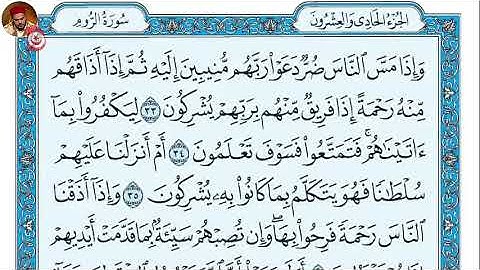 الجُزْءُ الحَادِى وَالعِشْرُونَ
سُورَةُ الرُّومِ
وَإِذَا مَسَّ ٱلنَّاسَ ضُرٌّ دَعَوْا۟ رَبَّهُم مُّنِيبِينَ إِلَيْهِ ثُمَّ إِذَآ أَذَاقَهُم
مِّنْهُ رَحْمَةً إِذَا فَرِيقٌ مِّنْهُم بِرَبِّهِمْ يُشْرِكُونَ ٣٣ لِيَكْفُرُوا۟ بِمَآ
ءَاتَيْنَٰهُمْ ۚ فَتَمَتَّعُوا۟ فَسَوْفَ تَعْلَمُونَ ٣٤ أَمْ أَنزَلْنَا عَلَيْهِمْ
سُلْطَٰنًا فَهُوَ يَتَكَلَّمُ بِمَا كَانُوا۟ بِهِۦ يُشْرِكُونَ ٣٥ وَإِذَآ أَذَقْنَا
ٱلنَّاسَ رَحْمَةً فَرِحُوا۟ بِهَا ۖ وَإِن تُصِبْهُمْ سَيِّئَةٌۢ بِمَا قَدَّمَتْ أَيْدِيهِمْ